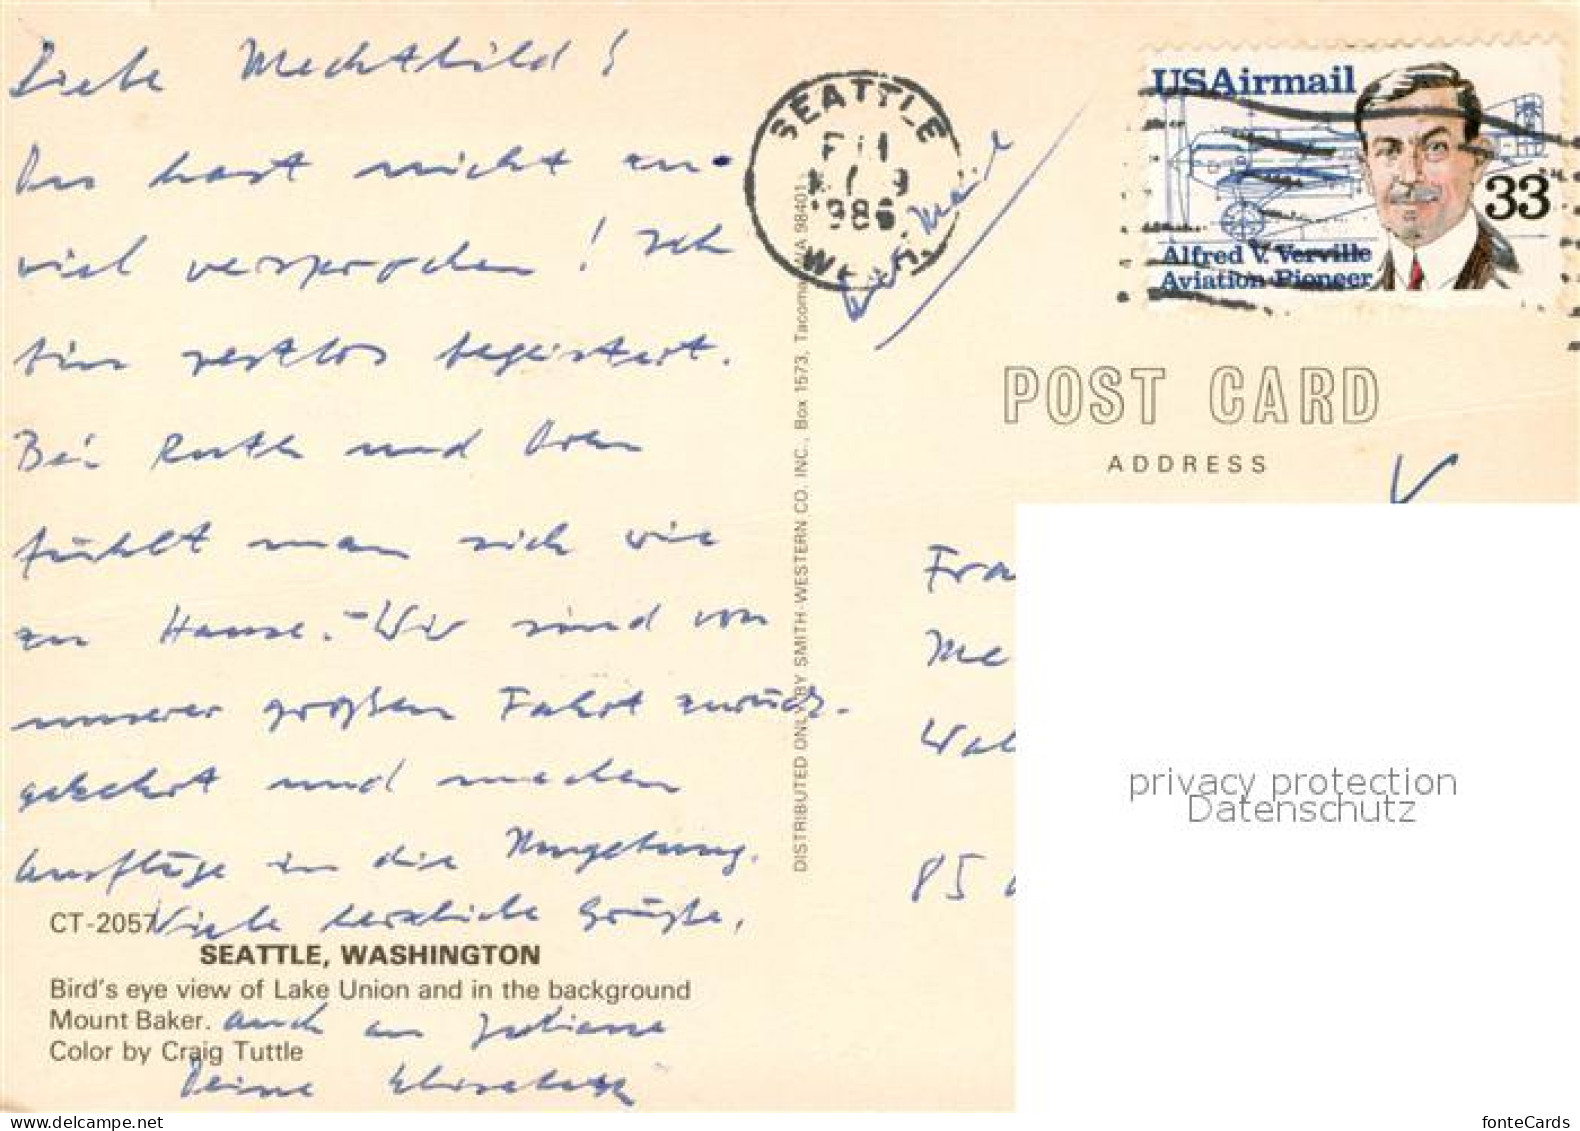 Liebe Mechthild!
Du hast nicht zu-
viel versprochen! Ich
bin restlos begeistert.
Bei Ruth und Orln
fühlt man sich wie
zu Hause. - Wir sind von
unserer großen Fahrt zurück-
gekehrt und machen
Ausflüge in die Umgebung.
Viele herzliche Grüße,
auch an Juliane
Deine Elisabeth
CT-2057
SEATTLE, WASHINGTON
Bird's eye view of Lake Union and in the background
Mount Baker.
Color by Craig Tuttle
DISTRIBUTED ONLY BY SMITH-WESTERN CO. INC., Box 1573, Tacoma, WA 98401
SEATTLE
1986
WASH.
Air Mail
USAirmail
33
Alfred V. Verville
Aviation Pioneer
POST CARD
ADDRESS
Fra
Me
Wal
85
privacy protection
Datenschutz
fonteCards